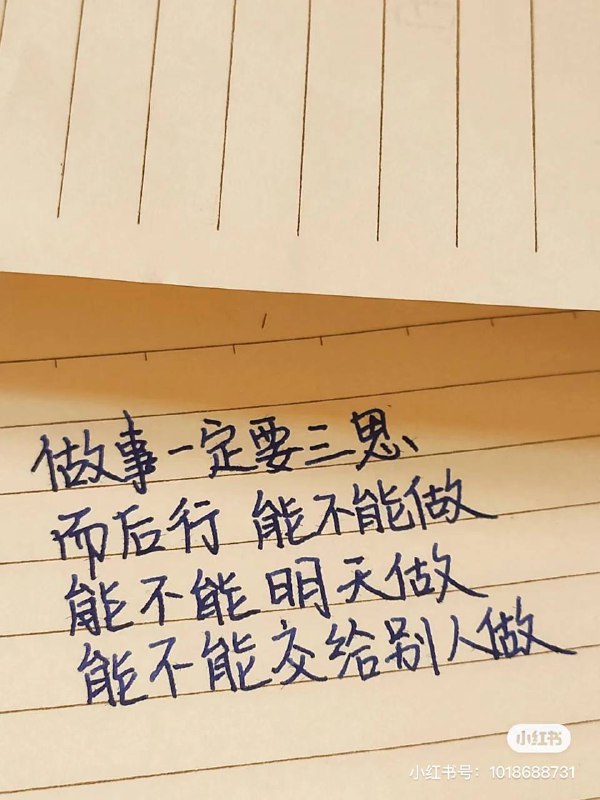 做事一定要三思
而后行 能不能做
能不能明天做
能不能交给别人做
小红书
小红书号：1018688731